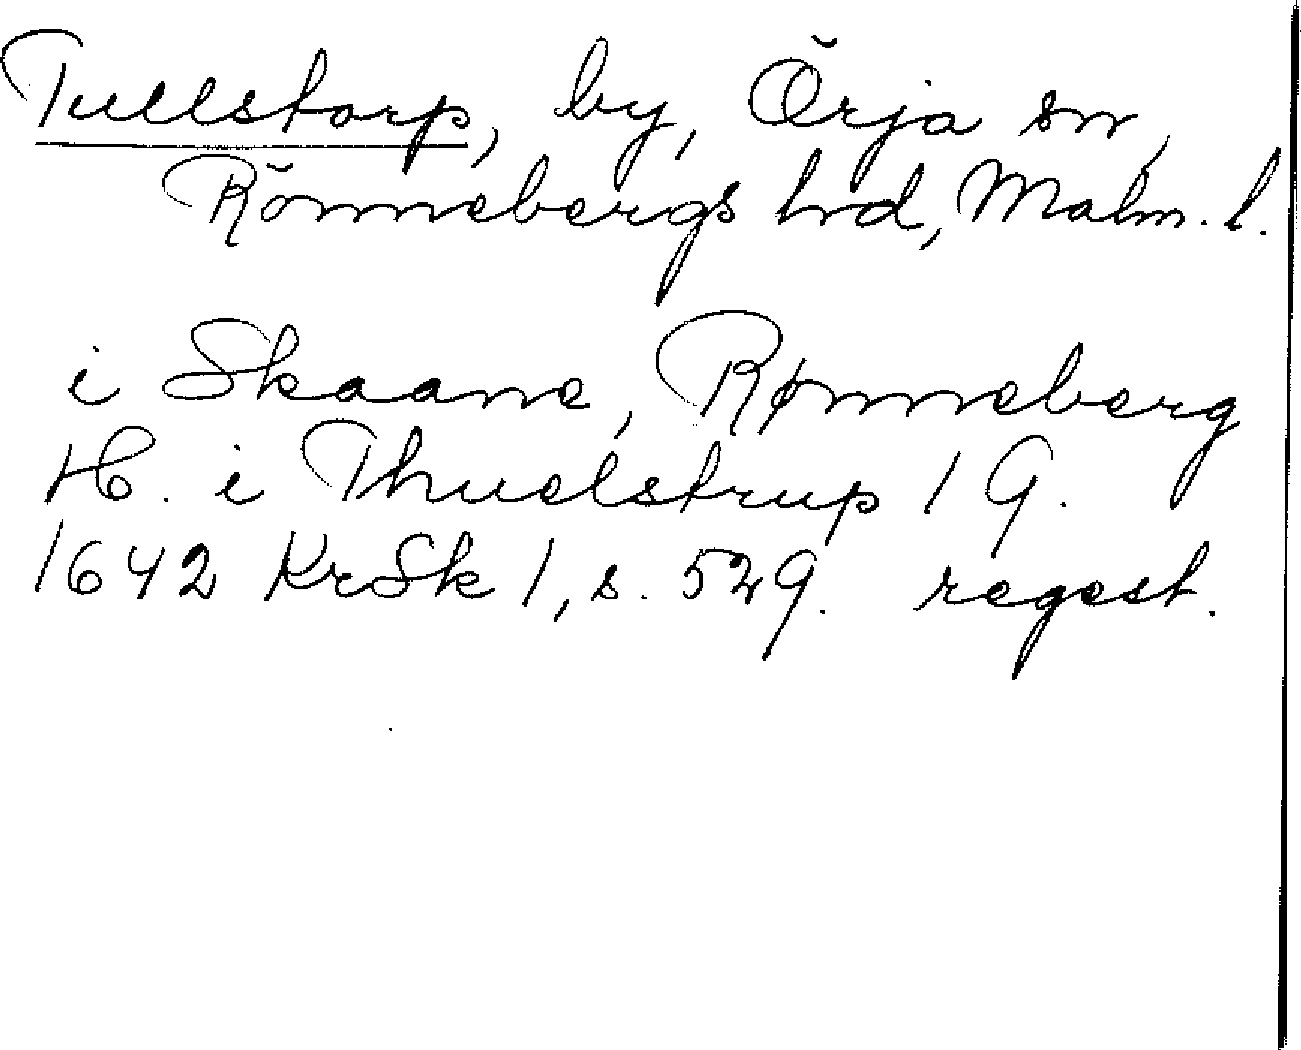 Tullstorp, by, Örja sn,
Rönnebergs hrd, Malm. l.
i Skaane, Rønneberg
H. i Thuelstrup 1 G.
1642 KrSk 1, s. 529. regest.